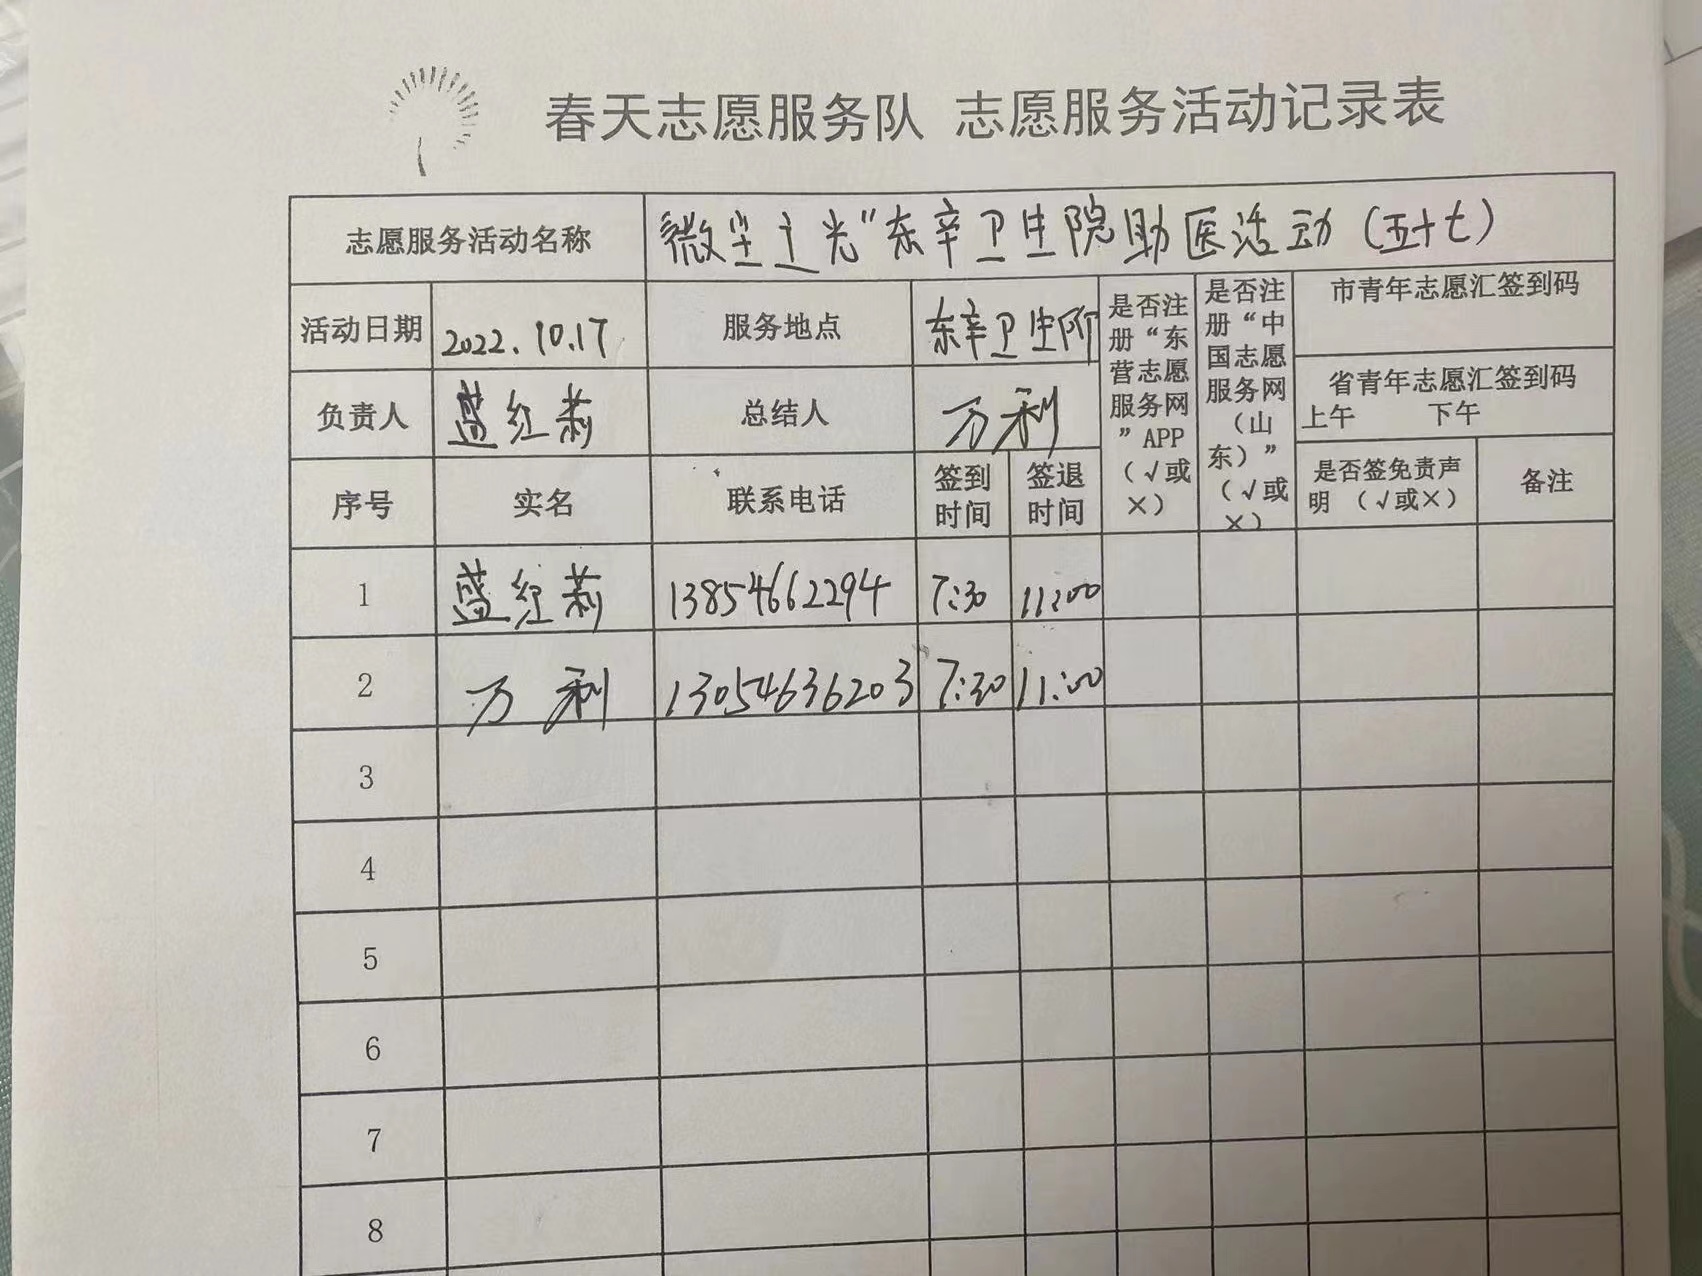 春天志愿服务队 志愿服务活动记录表
志愿服务活动名称 微尘之光"东辛卫生院助医活动(五十七)
活动日期 2022.10.17 服务地点 东辛卫生所
是否注册“东营志愿服务网”APP（√或×）
是否注册“中国志愿服务网（山东）”（√或×）
市青年志愿汇签到码
负责人 蓝红莉 总结人 万利
省青年志愿汇签到码
上午 下午
序号 实名 联系电话 签到时间 签退时间 是否签免责声明（√或×） 备注
1 蓝红莉 13854662294 7:30 11:00
2 万利 13054636203 7:30 11:00
3
4
5
6
7
8